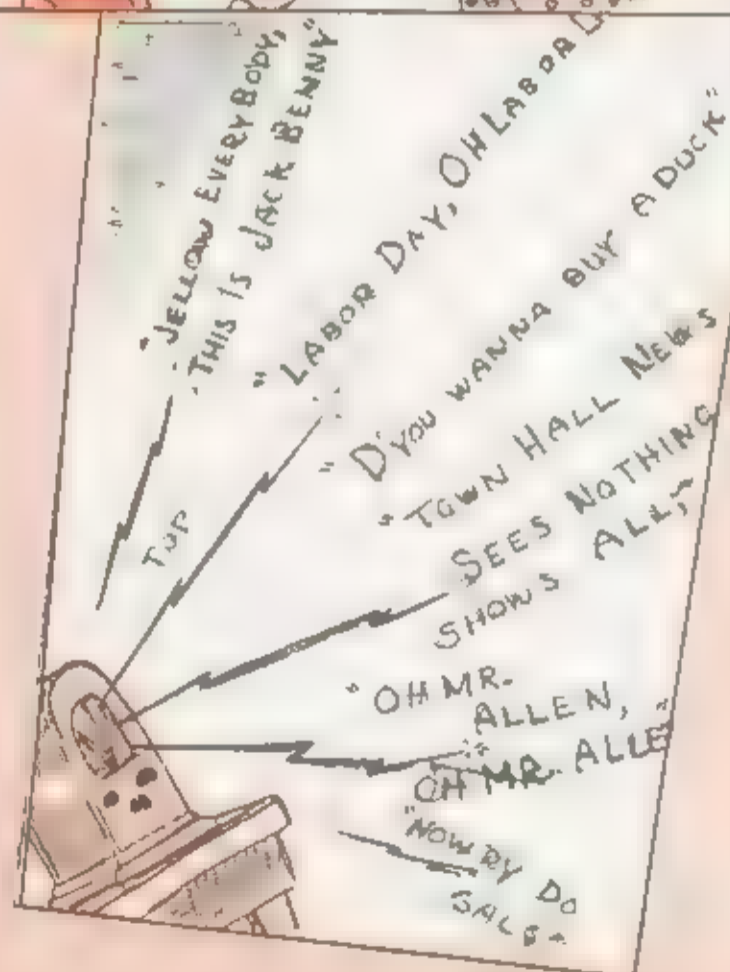 "JELLOW EVERYBODY,
THIS IS JACK BENNY"
"LABOR DAY, OH LABOR
"D'YOU WANNA BUY A DUCK"
"TOWN HALL NEWS
SEES NOTHING
SHOWS ALL,"
"OH MR.
ALLEN,
OH MR. ALLE"
"NOW RY DO